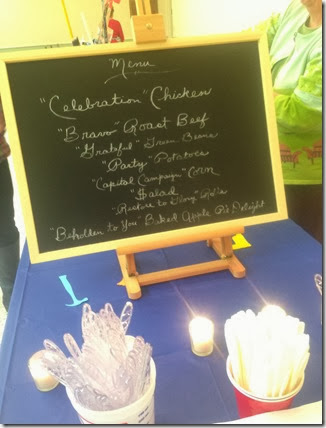 Menu
"Celebration" Chicken
"Bravo" Roast Beef
"Grateful" Green Beans
"Party" Potatoes
"Capital Campaign" Corn
"Salad
"Restore to Glory" Rolls
"Beholden to You" Baked Apple Pie Delight